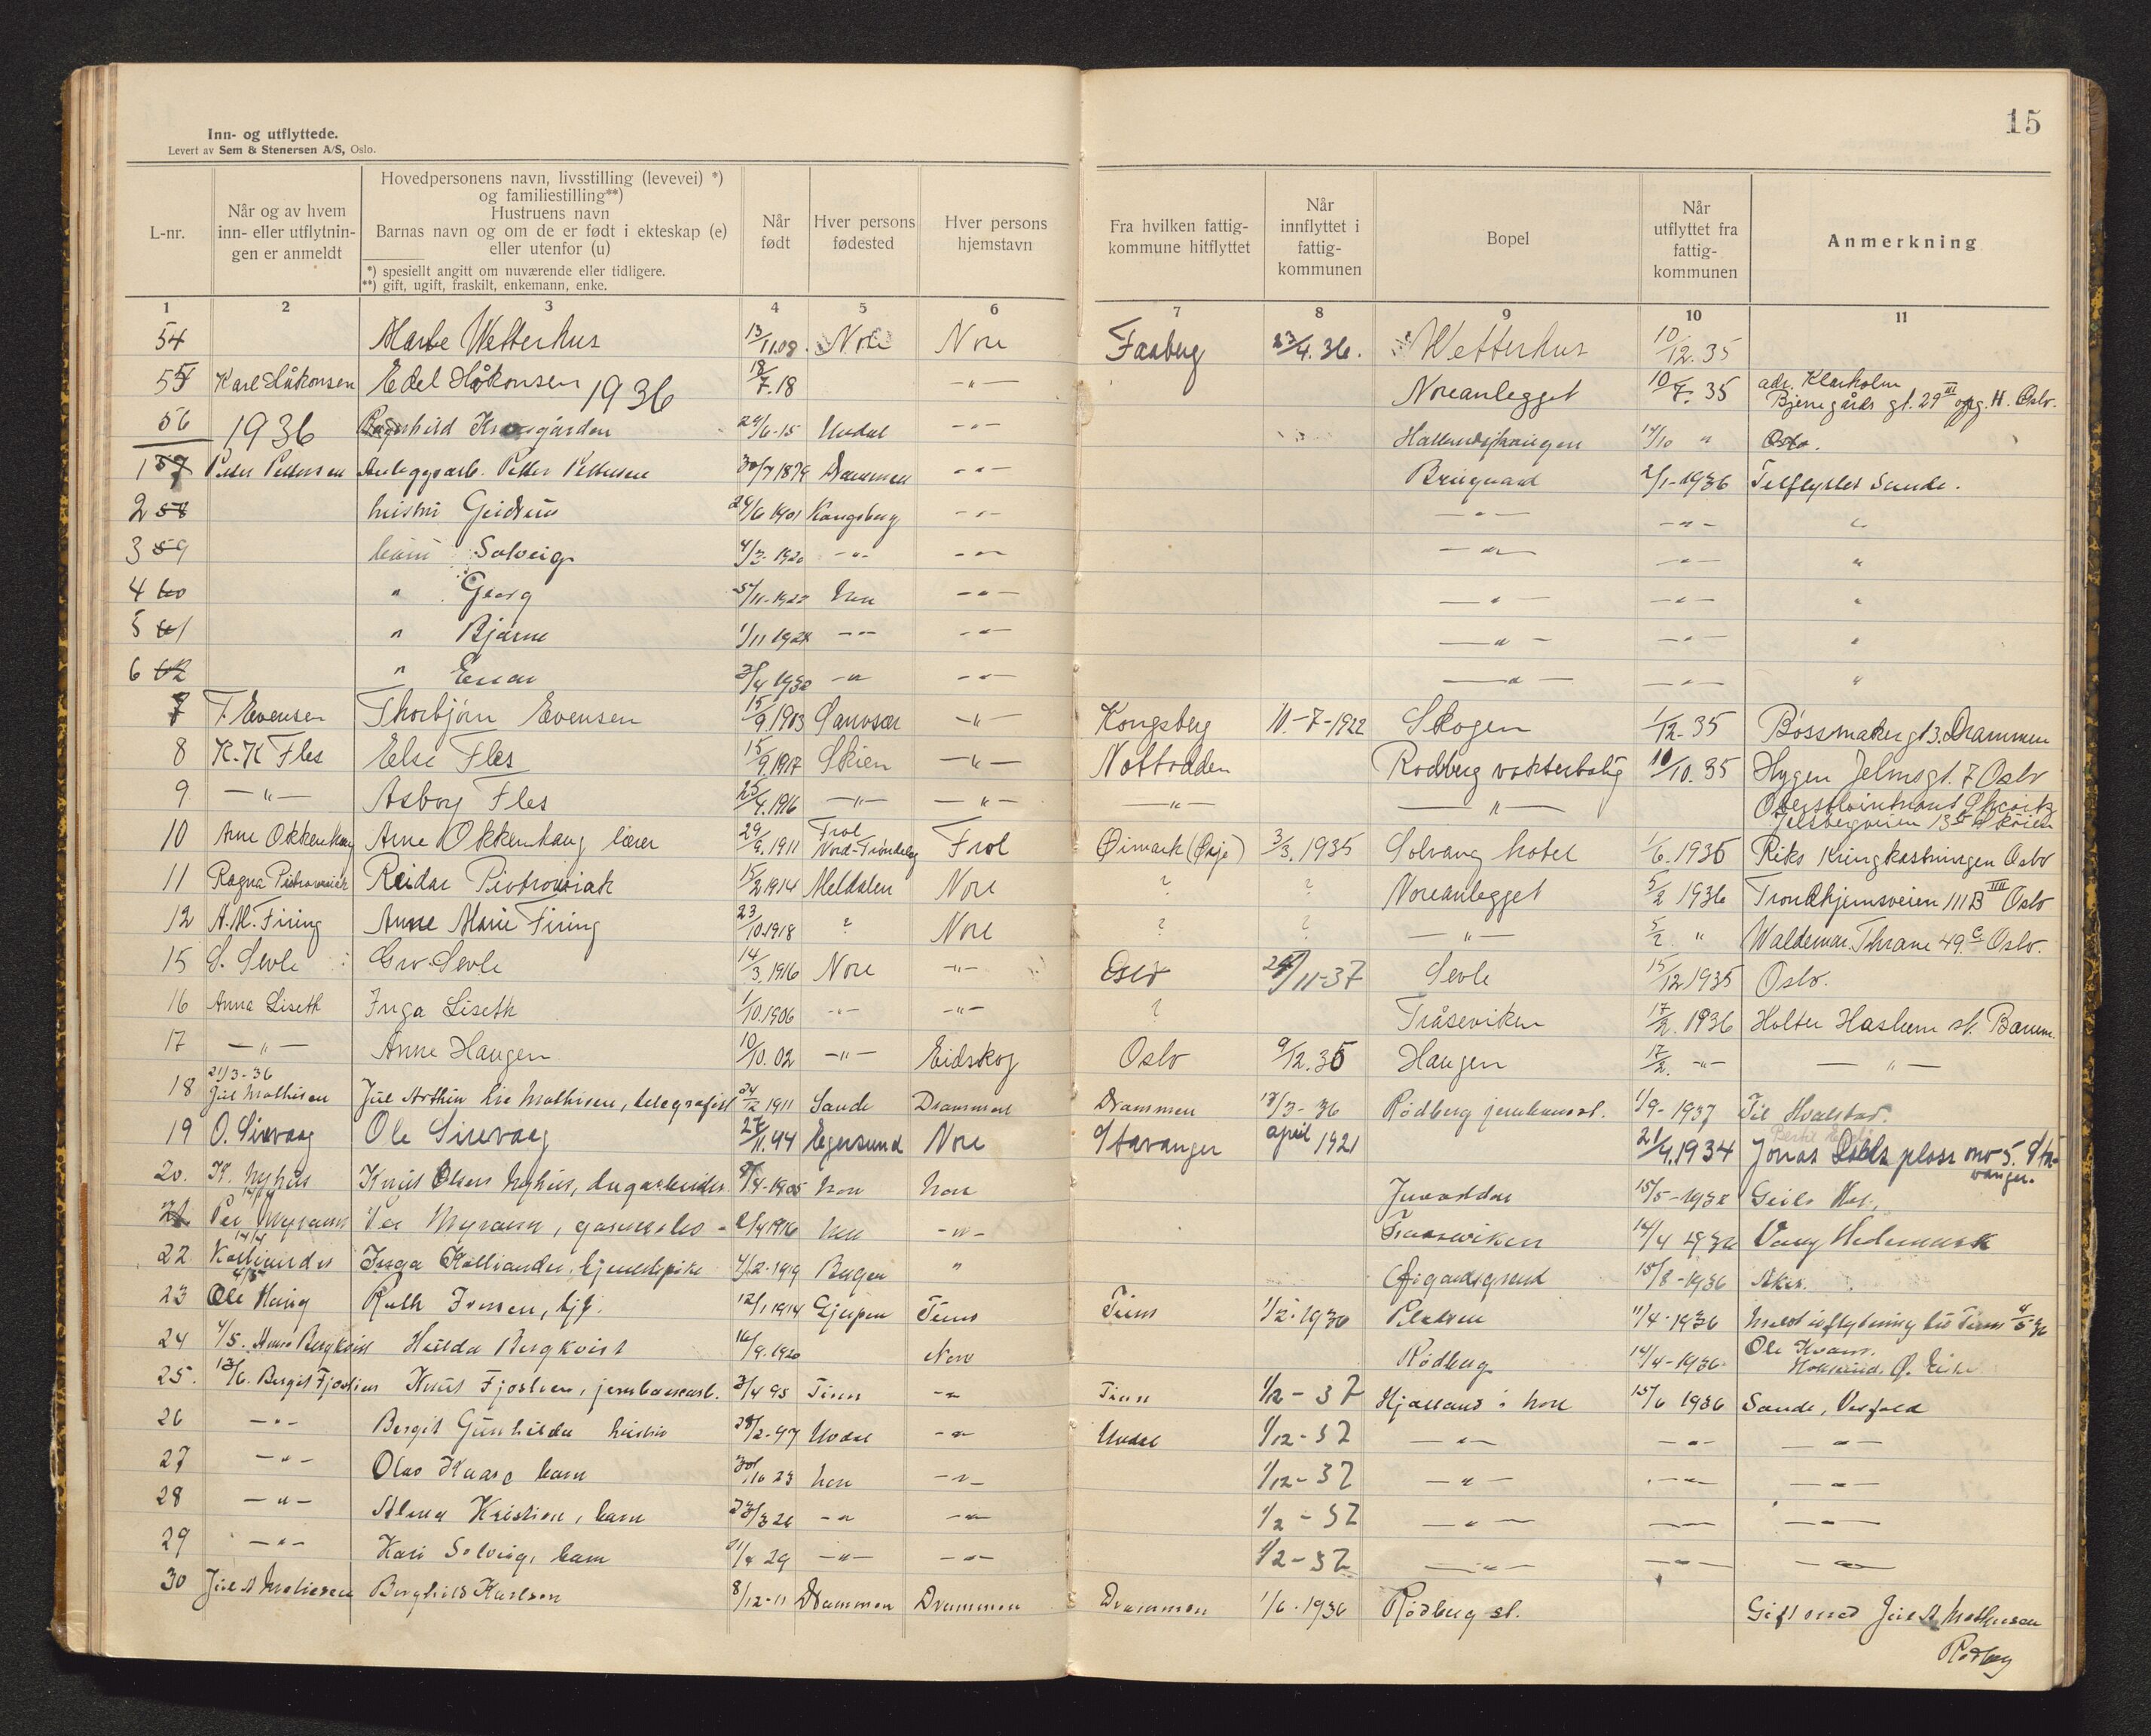 15
Inn- og utflyttede.
Levert av Sem & Stenersen A/S, Oslo.
L-nr.
Når og av hvem inn- eller utflytnin- gen er anmeldt
Hovedpersonens navn, livsstilling (levevei) *)
og familiestilling**)
Hustruens navn
Barnas navn og om de er født i ekteskap (e)
eller utenfor (u)
*) spesielt angitt om nuværende eller tidligere.
**) gift, ugift, fraskilt, enkemann, enke.
Når født
Hver persons fødested
Hver persons hjemstavn
Fra hvilken fattig- kommune hitflyttet
Når innflyttet i fattig- kommunen
Bopel
Når utflyttet fra fattig- kommunen
Anmerkning
1 2 3 4 5 6 7 8 9 10 11
54 Marte Wetterhus 13/11.08. Nore Nore Faaberg 23/4.36. Wetterhus 10/12.35
55 Karl Håkonsen Edel Håkonsen 1936 18/7.18 -"- Noreanlegget 10/7.35 adr. Klarholm
Bjerregårds gt. 29 III opg. H. Oslo.
56 1936 29/6-15 Uvdal -"- 14/10 " Oslo.
1 57 Peder Pettersen Anleggsarb. Petter Pettersen 30/7 1879 Drammen -"- Bruguard 2/1-1936 Tilflyttet Sande.
2 58 hustru Gudrun 29/6 1901 Kongsberg -"- -"- -"- "
3 59 barn Solveig 4/3-1920 -"- -"- -"- -"- "
4 60 " Georg 5/11-1922 Nore -"- -"- -"- "
5 61 " Bjarne 1/11 1924 -"- -"- -"- -"- "
6 62 " Einar 3/4 1930 -"- -"- -"- -"- "
7 T. Evensen Thorbjørn Evensen 15/9.1903 -"- Kongsberg 10.-7-1922 Skogen 1/12.35 Bøssmakergt 3. Drammen
8 K. K Fles Else Fles 15/9.1917 Skien -"- Nottodden Rødberg vokterbolig 10/10.35 Hygen Jelmsgt. 7 Oslo
9 -"- Asborg Fles 25/4.1916 -"- -"- -"- -"-
10 Arne Okkenhaug Arne Okkenhaug lærer 29/9.1911 Frol Nord-Trøndelag Frol Øimark (Ørje) 3/3.1935 Solvang hotel 1/6.1935 Riks kringkastningen Oslo
11 Ragna Piotrowiak Reidar Piotrowiak 15/2 1914 Meldalen Nore ? ? Noreanlegget 5/2 1936 Trondhjemsveien 111 B III Oslo
12 A. M. Firing Anne Marie Firing 23/10.1918 ? Nore ? ? -"- 5/2 " Waldemar Thrane 49 c Oslo.
15 S. Sevle Gro Sevle 14/3.1916 Nore -"- Oslo 24/11-37 Sevle 15/12 1935 Oslo.
16 Anna Liseth Inga Liseth 1/10.1906 -"- -"- ? Tråseviken 17/2.1936 Holter Haslum st. Bærum
17 -"- Anne Haugen 10/10.02 -"- Eidskog Oslo 9/12.35 Haugen 17/2. -"- -"-
21/3-36
18 Jul Mathisen Jul Arthur Lie Mathisen, telegrafist 24/12 1911 Sande Drammen Drammen 17/3-36 Rødberg jernbanest. 1/9-1937 Til Hvalstad.
19 O. Sirevaag Ole Sirevaag 27/11.94 Egersund Nore Stavanger april 1921 21/4.1934 Jonas plass no 5. Sta-
vanger.
20. K. Nyhus Knut Olsen Nyhus, dagarbeider 8/4-1905 Nore Nore 15/5-1936 Geilo
21 Per Myrann Per Myrann 2/4 1916 Nore -"- Traaseviken 14/4 1936 Vang Hedemark
14/4
22. Kolliander Inga Kolliander, tjenestepike 4/12-1919 " 15/8-1936 Aker.
4/5
23 Ole Haug Ruth 12/1 1914 Gjerpen Tinn Tinn 1/2-1930 11/4-1936 Meldt utflytning til Tinn 4/5 36
24 4/5. Bergkvist Hulda Bergkvist 16/9.1920 Nore Rødberg 14/4-1936
25. 13/6. Bergit Fjosteen Knut Fjosteen, jernbanearb. 3/4 95 Tinn -"- Tinn 1/12-37 Hjalland i Nore 15/6 1936 Sande, Vestfold
26 -"- Bergit Gunhilda hustru 28/2-97 Uvdal -"- Uvdal 1/12-37 -"- -"- -"-
27 -"- Olav barn 30/10 23 Nore -"- 1/12-37 -"- -"- -"-
28 -"- Alma Kristine, barn 23/3 26 -"- -"- 1/2-37 -"- -"- -"-
29 -"- Kari Solveig, barn 21/4 29 -"- -"- 1/2-37 -"- -"- -"-
30 Jul A Mathisen Borghild Karlsen 8/12-11 Drammen Drammen Drammen 1/6-1936 Rødberg st. Gift med Jul A Mathisen
Rødberg